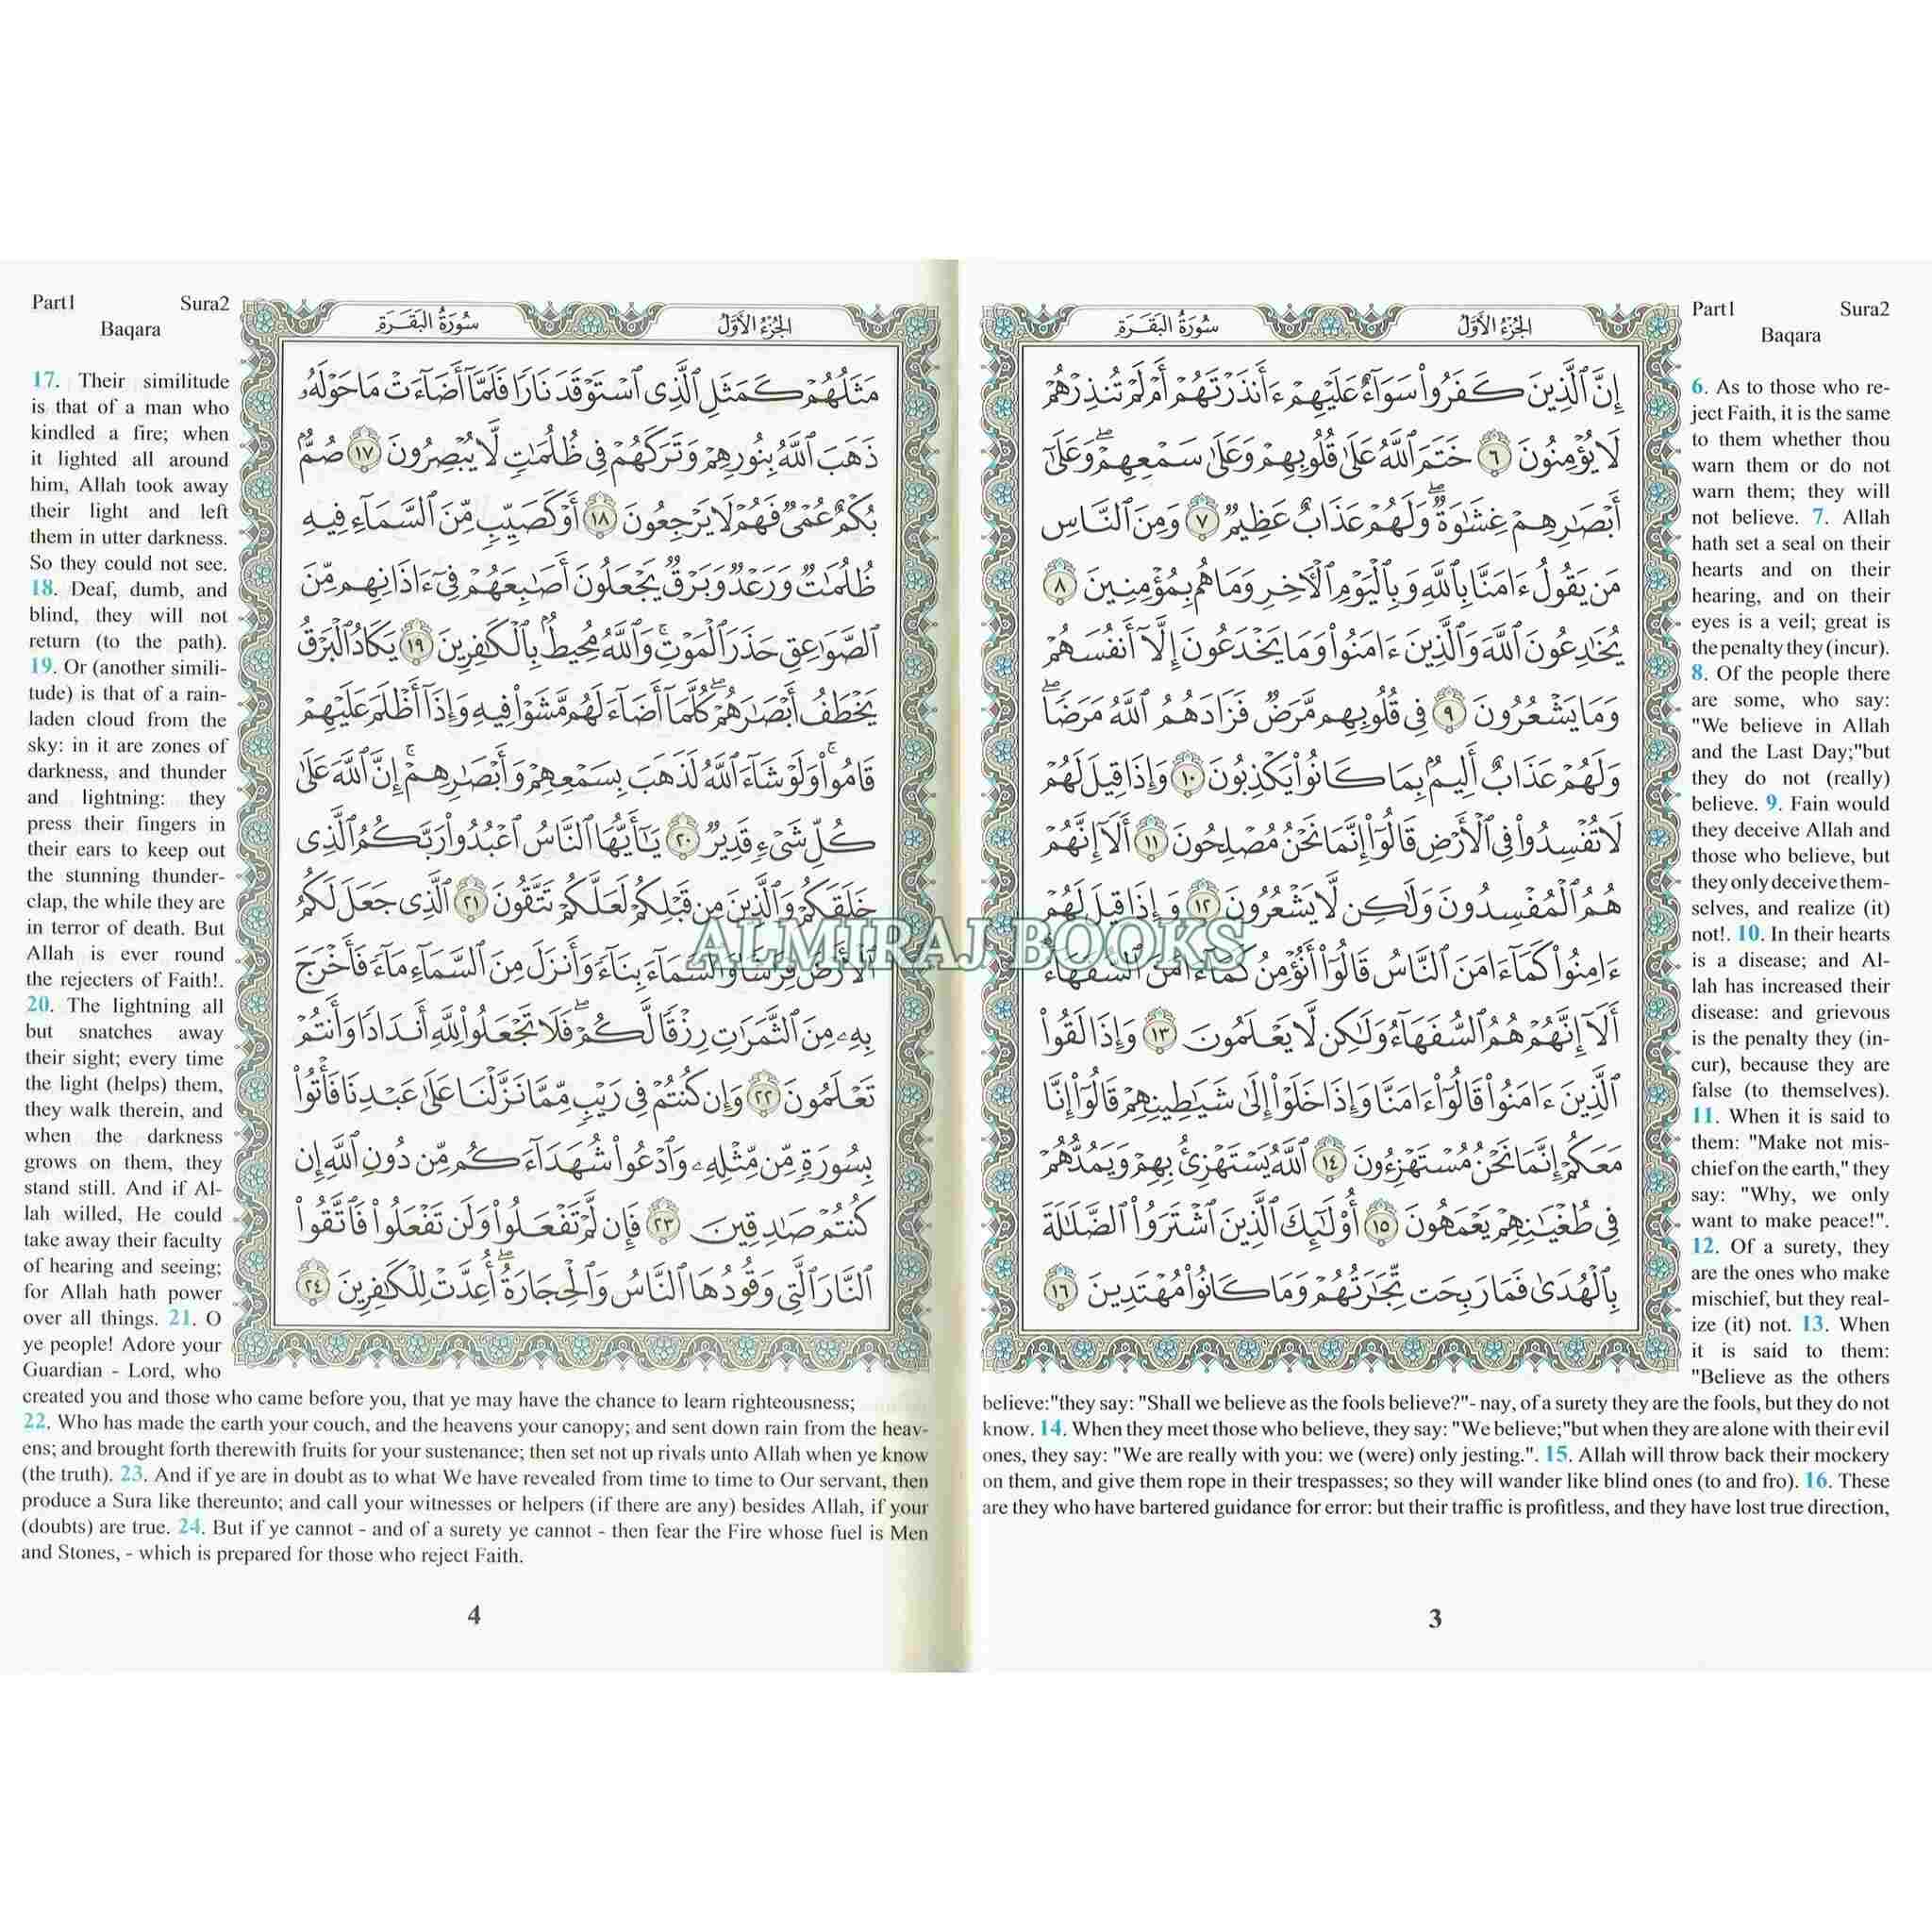 Part1 Sura2
Baqara
سُورَةُ البَقَرَةِ الجُزْءُ الأَوَّلُ
إِنَّ ٱلَّذِينَ كَفَرُوا۟ سَوَآءٌ عَلَيْهِمْ ءَأَنذَرْتَهُمْ أَمْ لَمْ تُنذِرْهُمْ
لَا يُؤْمِنُونَ ٦ خَتَمَ ٱللَّهُ عَلَىٰ قُلُوبِهِمْ وَعَلَىٰ سَمْعِهِمْ ۖ وَعَلَىٰٓ
أَبْصَٰرِهِمْ غِشَٰوَةٌ ۖ وَلَهُمْ عَذَابٌ عَظِيمٌ ٧ وَمِنَ ٱلنَّاسِ
مَن يَقُولُ ءَامَنَّا بِٱللَّهِ وَبِٱلْيَوْمِ ٱلْءَاخِرِ وَمَا هُم بِمُؤْمِنِينَ ٨
يُخَٰدِعُونَ ٱللَّهَ وَٱلَّذِينَ ءَامَنُوا۟ وَمَا يَخْدَعُونَ إِلَّآ أَنفُسَهُمْ
وَمَا يَشْعُرُونَ ٩ فِى قُلُوبِهِم مَّرَضٌ فَزَادَهُمُ ٱللَّهُ مَرَضًا ۖ
وَلَهُمْ عَذَابٌ أَلِيمٌۢ بِمَا كَانُوا۟ يَكْذِبُونَ ١٠ وَإِذَا قِيلَ لَهُمْ
لَا تُفْسِدُوا۟ فِى ٱلْأَرْضِ قَالُوٓا۟ إِنَّمَا نَحْنُ مُصْلِحُونَ ١١ أَلَآ إِنَّهُمْ
هُمُ ٱلْمُفْسِدُونَ وَلَٰكِن لَّا يَشْعُرُونَ ١٢ وَإِذَا قِيلَ لَهُمْ
ءَامِنُوا۟ كَمَآ ءَامَنَ ٱلنَّاسُ قَالُوٓا۟ أَنُؤْمِنُ كَمَآ ءَامَنَ ٱلسُّفَهَآءُ
أَلَآ إِنَّهُمْ هُمُ ٱلسُّفَهَآءُ وَلَٰكِن لَّا يَعْلَمُونَ ١٣ وَإِذَا لَقُوا۟
ٱلَّذِينَ ءَامَنُوا۟ قَالُوٓا۟ ءَامَنَّا وَإِذَا خَلَوْا۟ إِلَىٰ شَيَٰطِينِهِمْ قَالُوٓا۟ إِنَّا
مَعَكُمْ إِنَّمَا نَحْنُ مُسْتَهْزِءُونَ ١٤ ٱللَّهُ يَسْتَهْزِئُ بِهِمْ وَيَمُدُّهُمْ
فِى طُغْيَٰنِهِمْ يَعْمَهُونَ ١٥ أُو۟لَٰٓئِكَ ٱلَّذِينَ ٱشْتَرَوُا۟ ٱلضَّلَٰلَةَ
بِٱلْهُدَىٰ فَمَا رَبِحَت تِّجَٰرَتُهُمْ وَمَا كَانُوا۟ مُهْتَدِينَ ١٦
6. As to those who re-
ject Faith, it is the same
to them whether thou
warn them or do not
warn them; they will
not believe. 7. Allah
hath set a seal on their
hearts and on their
hearing, and on their
eyes is a veil; great is
the penalty they (incur).
8. Of the people there
are some, who say:
"We believe in Allah
and the Last Day;"but
they do not (really)
believe. 9. Fain would
they deceive Allah and
those who believe, but
they only deceive them-
selves, and realize (it)
not!. 10. In their hearts
is a disease; and Al-
lah has increased their
disease: and grievous
is the penalty they (in-
cur), because they are
false (to themselves).
11. When it is said to
them: "Make not mis-
chief on the earth," they
say: "Why, we only
want to make peace!".
12. Of a surety, they
are the ones who make
mischief, but they real-
ize (it) not. 13. When
it is said to them:
"Believe as the others
believe:"they say: "Shall we believe as the fools believe?"- nay, of a surety they are the fools, but they do not
know. 14. When they meet those who believe, they say: "We believe;"but when they are alone with their evil
ones, they say: "We are really with you: we (were) only jesting.". 15. Allah will throw back their mockery
on them, and give them rope in their trespasses; so they will wander like blind ones (to and fro). 16. These
are they who have bartered guidance for error: but their traffic is profitless, and they have lost true direction,
3
Part1 Sura2
Baqara
سُورَةُ البَقَرَةِ الجُزْءُ الأَوَّلُ
مَثَلُهُمْ كَمَثَلِ ٱلَّذِى ٱسْتَوْقَدَ نَارًا فَلَمَّآ أَضَآءَتْ مَا حَوْلَهُۥ
ذَهَبَ ٱللَّهُ بِنُورِهِمْ وَتَرَكَهُمْ فِى ظُلُمَٰتٍ لَّا يُبْصِرُونَ ١٧ صُمٌّۢ
بُكْمٌ عُمْىٌ فَهُمْ لَا يَرْجِعُونَ ١٨ أَوْ كَصَيِّبٍ مِّنَ ٱلسَّمَآءِ فِيهِ
ظُلُمَٰتٌ وَرَعْدٌ وَبَرْقٌ يَجْعَلُونَ أَصَٰبِعَهُمْ فِىٓ ءَاذَانِهِم مِّنَ
ٱلصَّوَٰعِقِ حَذَرَ ٱلْمَوْتِ ۚ وَٱللَّهُ مُحِيطٌۢ بِٱلْكَٰفِرِينَ ١٩ يَكَادُ ٱلْبَرْقُ
يَخْطَفُ أَبْصَٰرَهُمْ ۖ كُلَّمَآ أَضَآءَ لَهُم مَّشَوْا۟ فِيهِ وَإِذَآ أَظْلَمَ عَلَيْهِمْ
قَامُوا۟ ۚ وَلَوْ شَآءَ ٱللَّهُ لَذَهَبَ بِسَمْعِهِمْ وَأَبْصَٰرِهِمْ ۚ إِنَّ ٱللَّهَ عَلَىٰ
كُلِّ شَىْءٍ قَدِيرٌ ٢٠ يَٰٓأَيُّهَا ٱلنَّاسُ ٱعْبُدُوا۟ رَبَّكُمُ ٱلَّذِى
خَلَقَكُمْ وَٱلَّذِينَ مِن قَبْلِكُمْ لَعَلَّكُمْ تَتَّقُونَ ٢١ ٱلَّذِى جَعَلَ لَكُمُ
ٱلْأَرْضَ فِرَٰشًا وَٱلسَّمَآءَ بِنَآءً وَأَنزَلَ مِنَ ٱلسَّمَآءِ مَآءً فَأَخْرَجَ
بِهِۦ مِنَ ٱلثَّمَرَٰتِ رِزْقًا لَّكُمْ ۖ فَلَا تَجْعَلُوا۟ لِلَّهِ أَندَادًا وَأَنتُمْ
تَعْلَمُونَ ٢٢ وَإِن كُنتُمْ فِى رَيْبٍ مِّمَّا نَزَّلْنَا عَلَىٰ عَبْدِنَا فَأْتُوا۟
بِسُورَةٍ مِّن مِّثْلِهِۦ وَٱدْعُوا۟ شُهَدَآءَكُم مِّن دُونِ ٱللَّهِ إِن
كُنتُمْ صَٰدِقِينَ ٢٣ فَإِن لَّمْ تَفْعَلُوا۟ وَلَن تَفْعَلُوا۟ فَٱتَّقُوا۟
ٱلنَّارَ ٱلَّتِى وَقُودُهَا ٱلنَّاسُ وَٱلْحِجَارَةُ ۖ أُعِدَّتْ لِلْكَٰفِرِينَ ٢٤
17. Their similitude
is that of a man who
kindled a fire; when
it lighted all around
him, Allah took away
their light and left
them in utter darkness.
So they could not see.
18. Deaf, dumb, and
blind, they will not
return (to the path).
19. Or (another simili-
tude) is that of a rain-
laden cloud from the
sky: in it are zones of
darkness, and thunder
and lightning: they
press their fingers in
their ears to keep out
the stunning thunder-
clap, the while they are
in terror of death. But
Allah is ever round
the rejecters of Faith!.
20. The lightning all
but snatches away
their sight; every time
the light (helps) them,
they walk therein, and
when the darkness
grows on them, they
stand still. And if Al-
lah willed, He could
take away their faculty
of hearing and seeing;
for Allah hath power
over all things. 21. O
ye people! Adore your
Guardian - Lord, who
created you and those who came before you, that ye may have the chance to learn righteousness;
22. Who has made the earth your couch, and the heavens your canopy; and sent down rain from the heav-
ens; and brought forth therewith fruits for your sustenance; then set not up rivals unto Allah when ye know
(the truth). 23. And if ye are in doubt as to what We have revealed from time to time to Our servant, then
produce a Sura like thereunto; and call your witnesses or helpers (if there are any) besides Allah, if your
(doubts) are true. 24. But if ye cannot - and of a surety ye cannot - then fear the Fire whose fuel is Men
and Stones, - which is prepared for those who reject Faith.
4
ALMIRAJ BOOKS